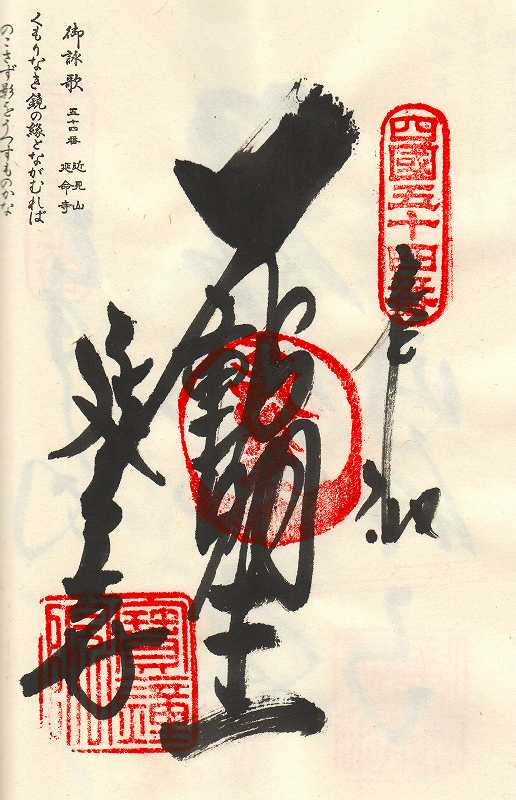 四國五十四番
奉
納
不動明王
延命寺
寶鐘
御詠歌 五十四番 近見山 延命寺
くもりなき鏡の縁とながむれば
のこさず影をうつすものかな